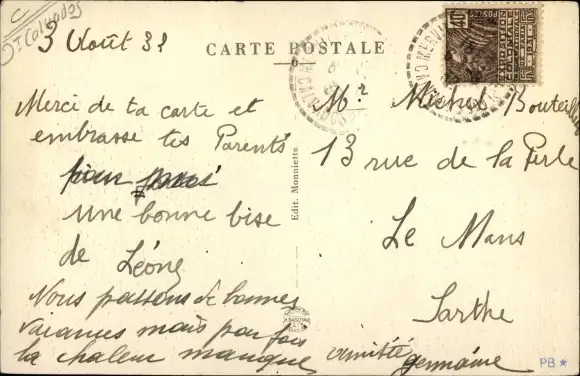 (Calvados)
3 Août 31
CARTE POSTALE
40c
POSTES
EXPOSITION
COLONIALE
1931
Merci de ta carte et
embrasse tes Parents
pour nous
une bonne bise
de Léone
Nous passons de bonnes
vacances mais par fois
la chaleur manque
amitié
germaine
Edit. Monniette
Mr. Michel Bouteiller
13 rue de la Perle
Le Mans
Sarthe
PB ★